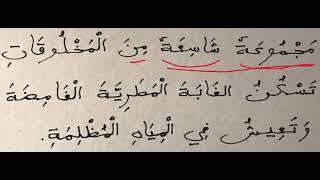 مَجْمُوعَةٌ شَاسِعَةٌ مِنَ الْمَخْلُوقَاتِ
تَسْكُنُ الْغَابَةَ الْمَطَرِيَّةَ الْغَامِضَةَ
وَتَعِيشُ فِي الْمِيَاهِ الْمُظْلِمَةِ.